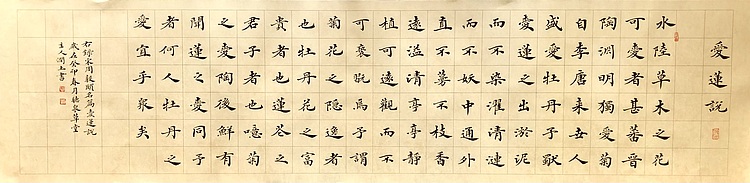 愛蓮說
水陸草木之花
可愛者甚蕃晉
陶淵明獨愛菊
自李唐来世人
盛愛牡丹予獨
愛蓮之出淤泥
而不染濯清漣
而不妖中通外
直不蔓不枝香
遠溢清亭亭靜
植可遠觀而不
可褻翫焉予謂
菊花之隱逸者
也牡丹花之富
貴者也蓮花之
君子者也噫菊
之愛陶後鮮有
聞蓮之愛同予
者何人牡丹之
愛宜乎衆矣
右錄宋周敦頤名篇愛蓮說
歲在癸卯春月聽泉草堂
主人潤土書